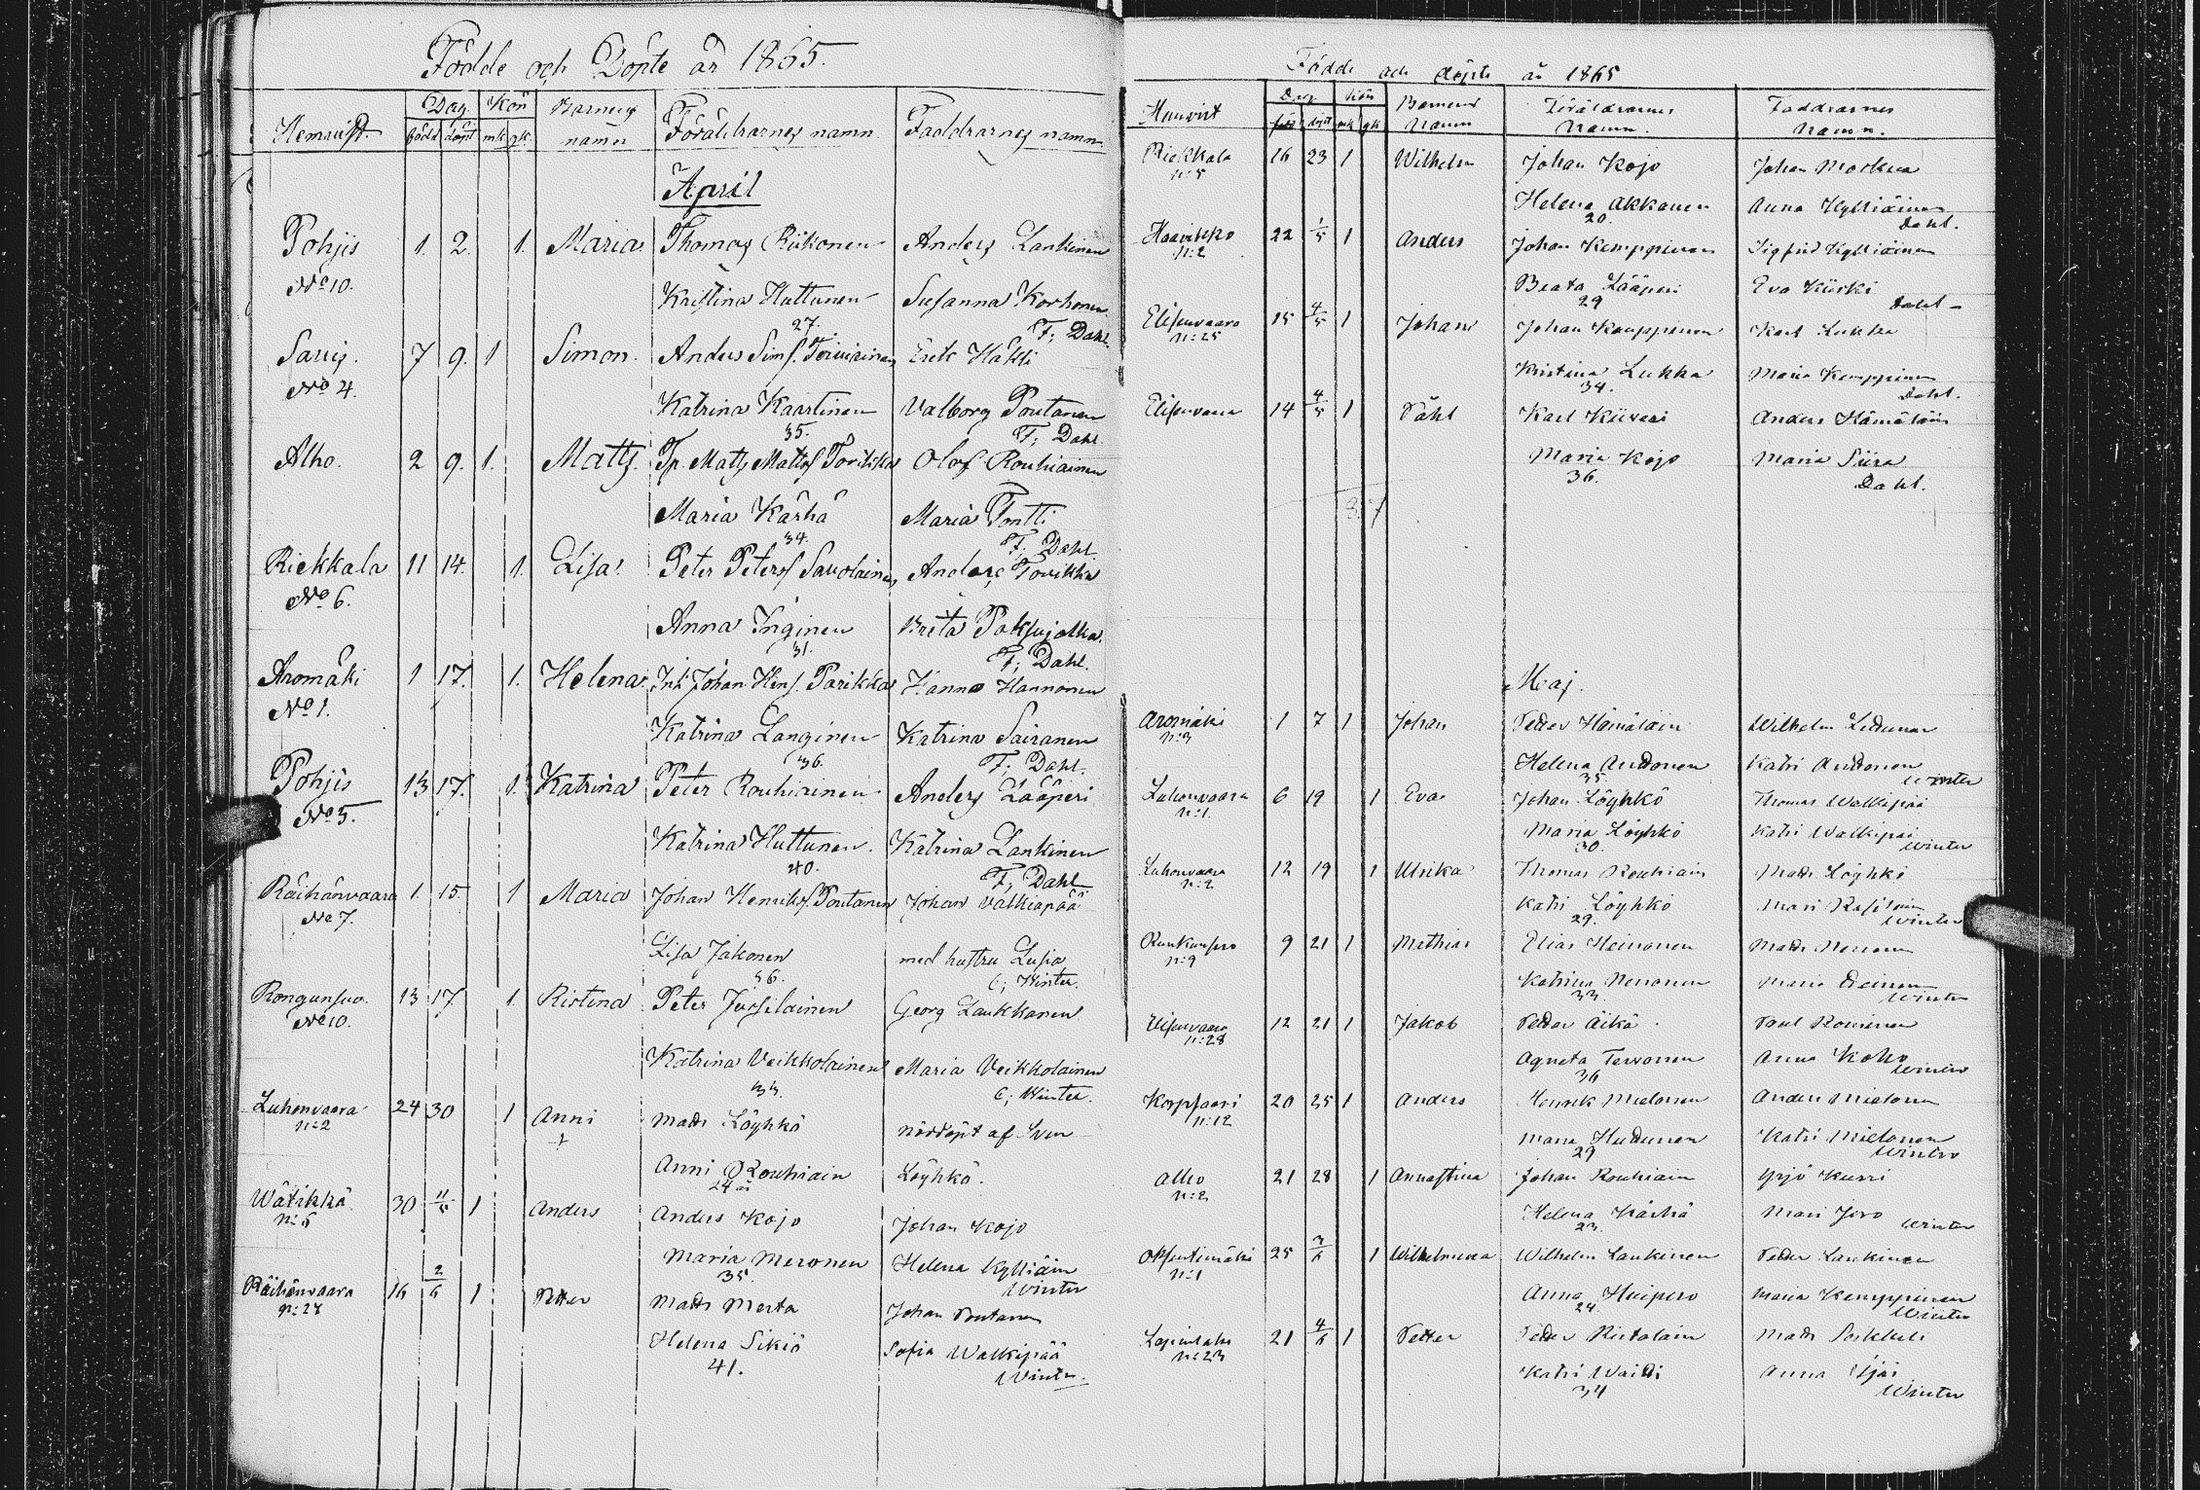 Födde och Döpte år 1865.
Hemvist. Dag. Kön Barnens namn Föräldrarnes namn. Faddrarnes namn.
född döpt mk. qk.
April
Pohjis 1. 2. 1. Maria Thomas Riikonen Anders Lankinen
No 10. Kristina Huttunen Susanna Korhonen
27. F; Dahl.
7 9. 1 Simon. Anders Sims. Erik Häkli
No 4. Katrina Kaartinen Valborg Poutanen
35. F; Dahl
Alho. 2 9. 1. Matts. Matts Matts Olof Rouhiainen
Maria Kärhä Maria Pontti
34. F, Dahl.
Riekkala 11 14. 1. Lisa Peter Peters Savolainen Anders Tovikka
No 6. Anna Inginen Brita Paksujalka.
31. F; Dahl.
Aromäki 1 17. 1. Helena Inh Johan Hens. Parikka Hannonen
No 1. Katrina Langinen Katrina Sairanen
36. F; Dahl.
Pohjis 13 17. 1. Katrina Peter Rouhiainen Anders Lääperi
No 5. Katrina Huttunen. Katrina Lankinen
40. F, Dahl
Räihänvaara 1. 15. 1 Maria Johan Henriks. Poutanen Johan Valkiapää
No 7. Lisa Jakonen med hustru Lusia
36. C; Winter.
Rongunsuo. 13 17. 1. Ristina Peter Jussilainen Georg Laukkanen
No 10. Katrina Veikkolainen Maria Veikkolainen
33. C; Winter.
Luhonvaara 24 30 1 Anni Mats Löyhkö nöddöpt af Sven
n:2 + Anni Rouhiain Löyhkö.
24 år
Wätikkä 30 11/5 1 Anders Anders Kojo Johan Kojo
n:6 Maria Meronen Helena Kylliäin
35. Winter
Räihänvaara 16 2/6 1 Petter Mats Merta Johan Poutanen
n:28 Helena Sikiö Sofia Walkipää
41. Winter.
Födde och döpte år 1865
Hemvist Dag Kön Barnens Namn Föräldrarnes Namn. Faddrarnes Namn.
född döpt mk qk
Riekkala 16 23 1 Wilhelm Johan Kojo Johan
n:5 Helena Akkanen Anna Kylliäinen
20. Dahl.
Haavikko 22 1/5 1 Anders Johan Kemppinen Sigfrid Kylliäinen
n:2 Beata Lääperi Eva Kiiski
29 Dahl
Elisenvaara 15 4/5 1 Johan Johan Kemppinen Karl Lukka
n:25 Kristina Lukka Maria Kemppinen
34. Dahl.
Elisenvaara 14 4/5 1 Påhl Karl Kiiveri Anders Hämäläin
Maria Kojo Maria Siira
36. Dahl.
8. 7
Maj.
Aromäki 1 7 1 Johan Petter Hämäläin Wilhelm
n:3 Helena Andonen Katri Andonen
35. Winter
Luhonvaara 6 19 1 Eva Johan Löyhkö Thomas Walkipää
n:1. Maria Löyhkö Katri Walkipää
30. Winter
Luhonvaara 12 19 1 Ulrika Thomas Rouhiain Mats Löyhkö
n:2 Katri Löyhkö Mari
29. Winter
9 21 1 Mathias Elias Heinonen Mats Neronen
n:9 Katrina Neronen Maria
33. Winter
Elisenvaara 12 21 1 Jakob Petter Äikä Paul
n:28 Agneta Tervonen Anna Koho
36 Winter
Korpisaari 20 25 1 Anders Henrik Mielonen Anders Mielonen
n:12 Maria Katri Mielonen
29 Winter
Alho 21 28 1 Annastina Johan Rouhiain Yrjö Kurri
n:2 Helena Kärhä Mari
23. Winter
25 3/6 1 Wilhelmina Wilhelm Lankinen Petter Lankinen
n:1 Anna Huipero Maria Kemppinen
24. Winter
Lopinlaks 21 4/6 1 Petter Petter Rietalain Mats
n:23 Katri Anna
34 Winter